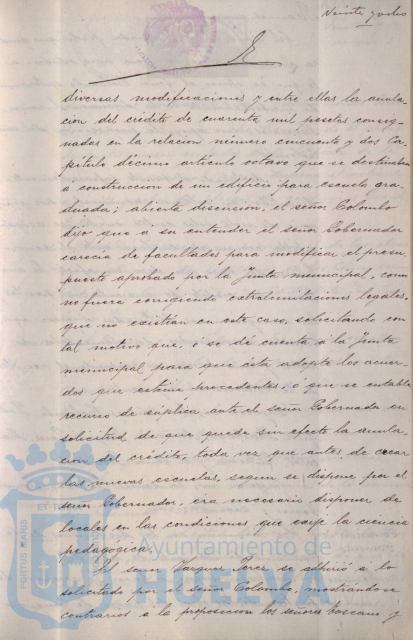 Veinte y ocho
diversas modificaciones y entre ellas la anula-
cion del crédito de cuarenta mil pesetas consig-
nadas en la relacion número cincuenta y dos Ca-
pítulo décimo artículo octavo que se destinaban
á construccion de un edificio para escuela gra-
duada; abierta discusion, el señor Colombo
dijo que á su entender el señor Gobernador
carecia de facultades para modificar el presu-
puesto aprobado por la Junta municipal, como
no fuera corrigiendo extralimitaciones legales,
que no existian en este caso, solicitando con
tal motivo que, ó se dé cuenta á la Junta
municipal para que ésta adopte los acuer-
dos que estime procedentes, ó que se entable
recurso de súplica ante el señor Gobernador en
solicitud de que quede sin efecto la anula-
cion del crédito, toda vez que antes de crear
las nuevas escuelas, segun se dispone por el
señor Gobernador, era necesario disponer de
locales en las condiciones que exije la ciencia
pedagógica.
El señor Vazquez Perez se adhirió á lo
solicitado por el señor Colombo, mostrándose
contrarios á la proposicion los señores Toscano y
PORTUS MARIS
ET
Ayuntamiento de
HUELVA